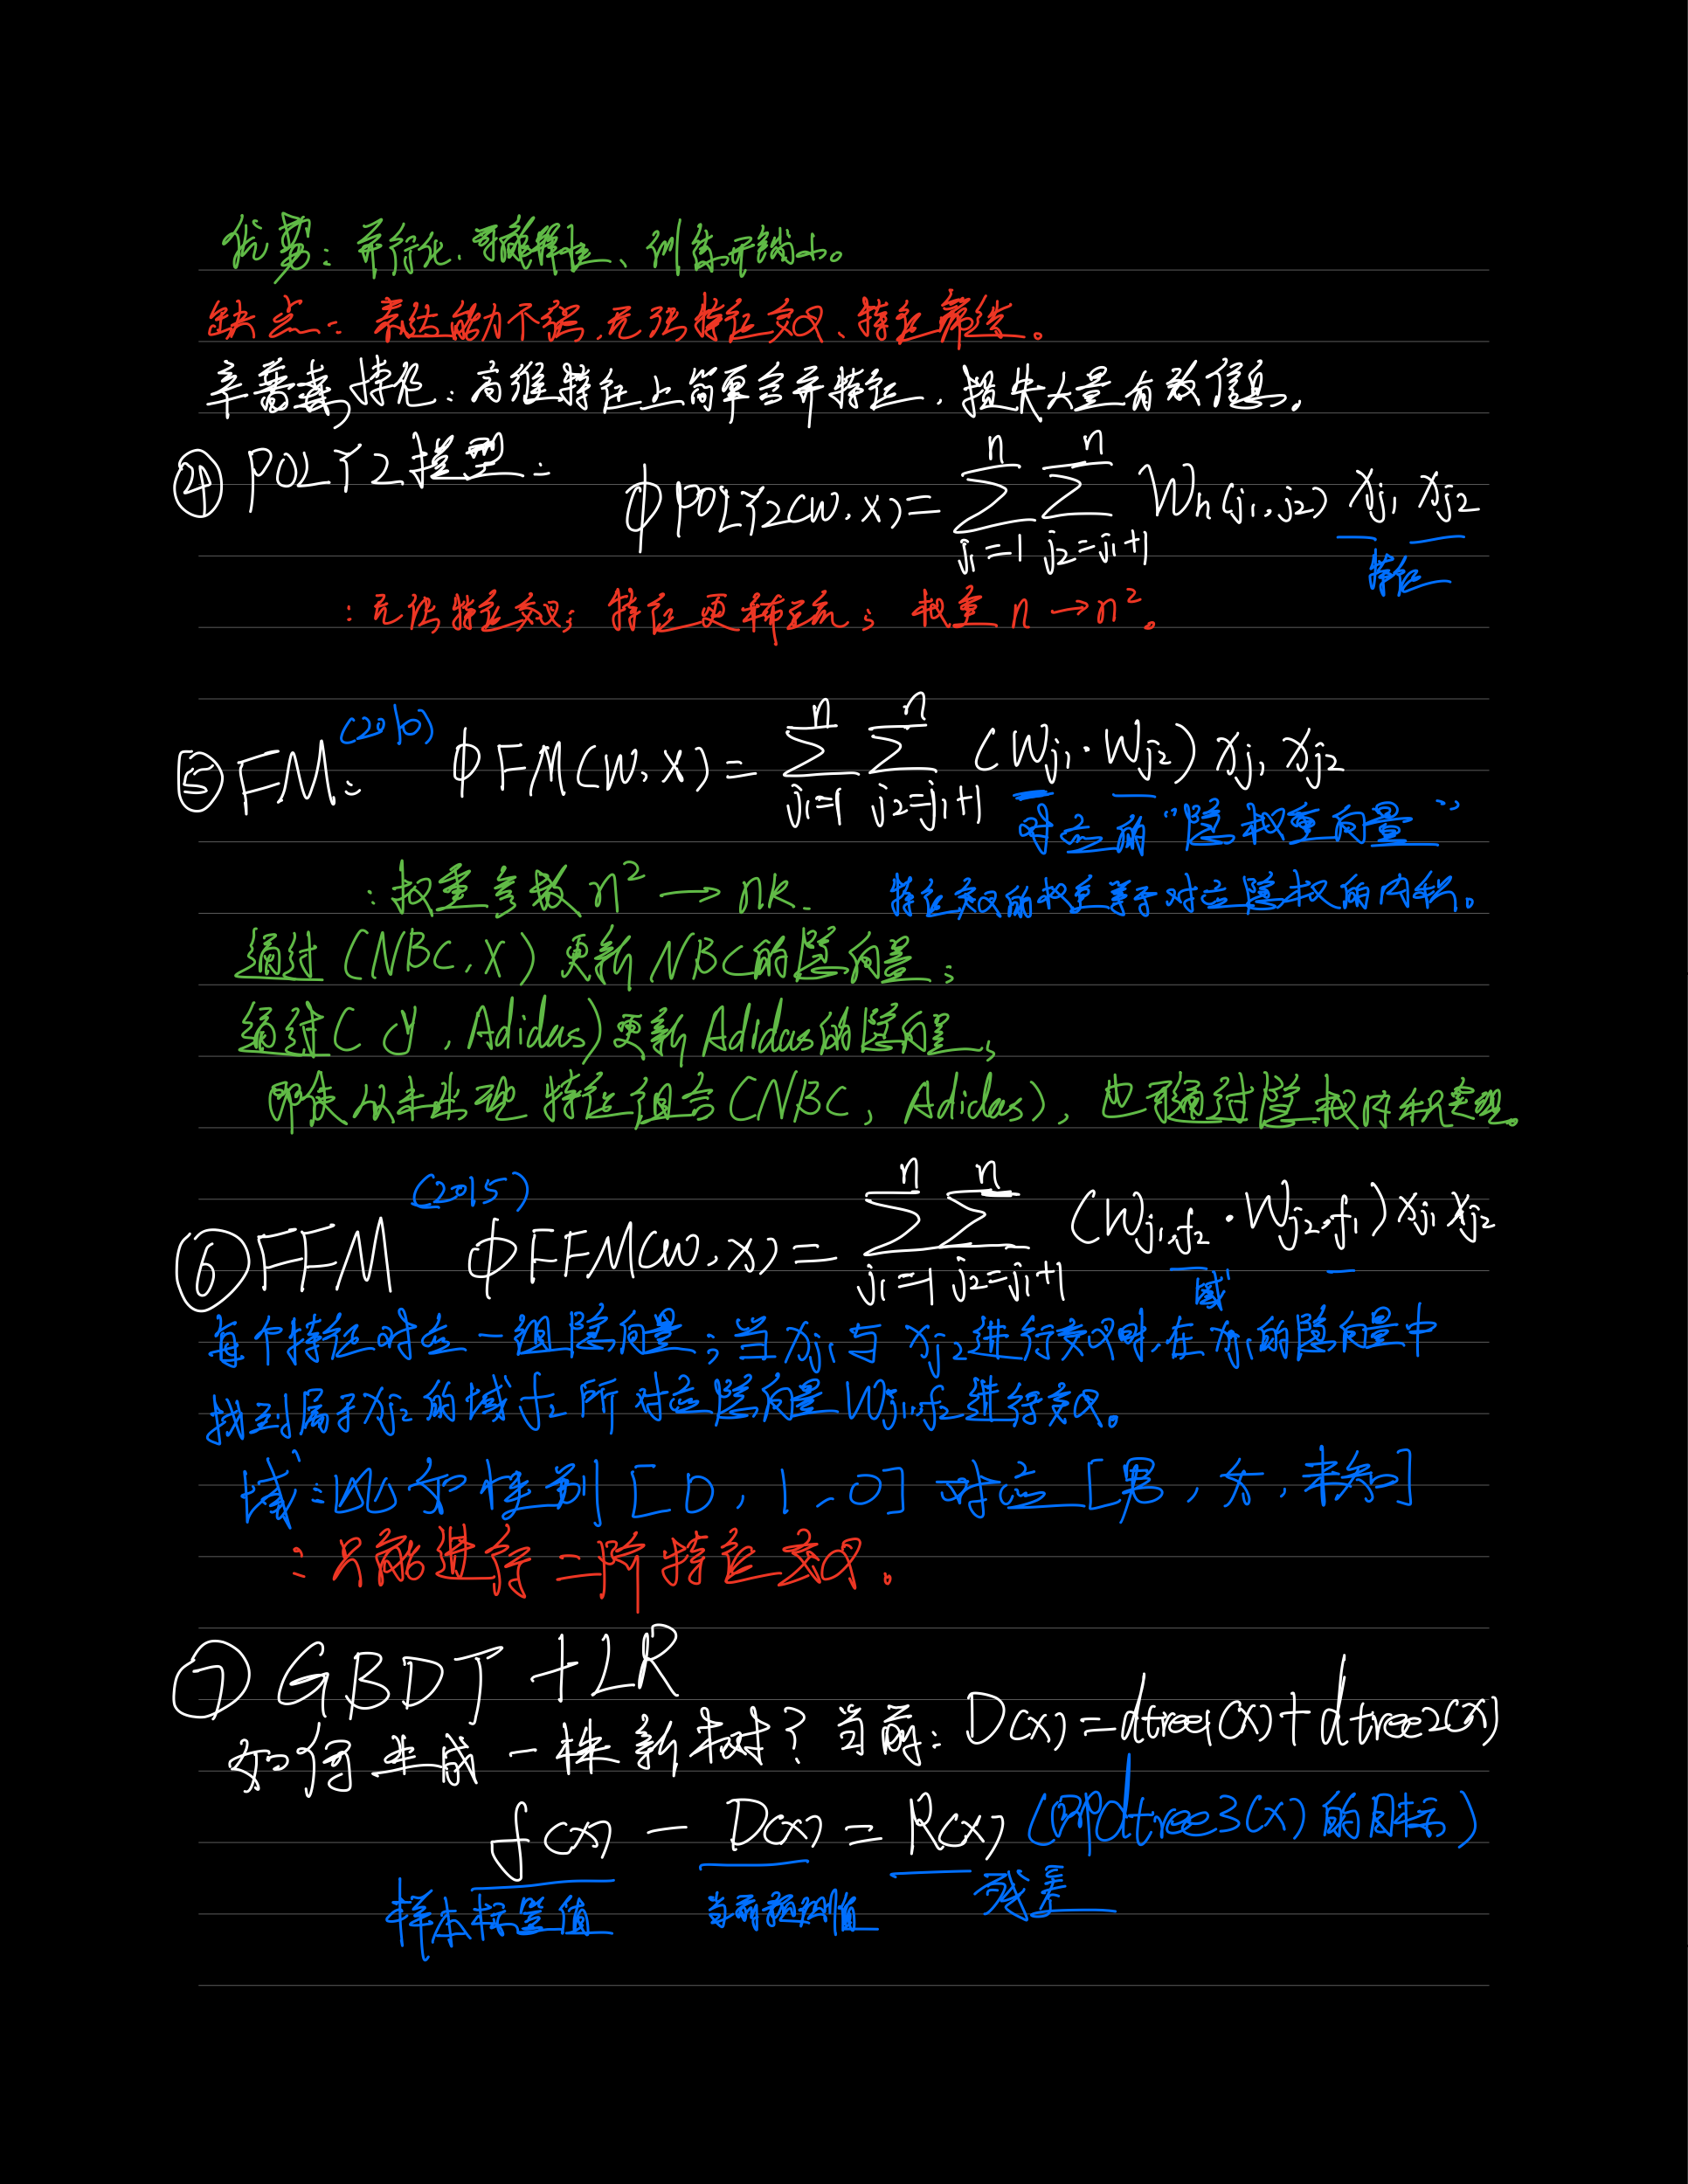 优势：并行化、可解释性、训练开销小。
缺点：表达能力不强，无法特征交叉、特征筛选。
辛普森悖论：高维特征上简单合并特征，损失大量有效信息。
④ POLY2模型：
ϕPOLY2(w,x)=∑_{j1=1}^{n}∑_{j2=j1+1}^{n} W_{h(j1,j2)} x_{j1} x_{j2}
特征
：无法特征交叉；特征更稀疏；权重 n→n²。
⑤ FM：(2010) ϕFM(w,x)=∑_{j1=1}^{n}∑_{j2=j1+1}^{n} (W_{j1}·W_{j2}) x_{j1} x_{j2}
对应的“隐权重向量”
：权重参数 n²→nk. 特征交叉的权重等于对应隐权的内积。
通过(NBC,X)更新NBC的隐向量；
通过(Y,Adidas)更新Adidas的隐向量，
即使从未出现特征组合(NBC,Adidas)，也可通过隐权内积实现。
⑥ FFM (2015) ϕFFM(w,x)=∑_{j1=1}^{n}∑_{j2=j1+1}^{n} (W_{j1,f2}·W_{j2,f1}) x_{j1} x_{j2}
域
每个特征对应一组隐向量；当x_{j1}与x_{j2}进行交叉时，在x_{j1}的隐向量中
找到属于x_{j2}的域f2所对应隐向量W_{j1,f2}进行交叉。
域：比如性别[0,1,0]对应[男,女,未知]
：只能进行二阶特征交叉。
⑦ GBDT+LR
如何生成一株新树？当前：D(x)=dtree1(x)+dtree2(x)
f(x)－D(x)=R(x) (即dtree3(x)的目标)
样本标签值 当前预测值 残差